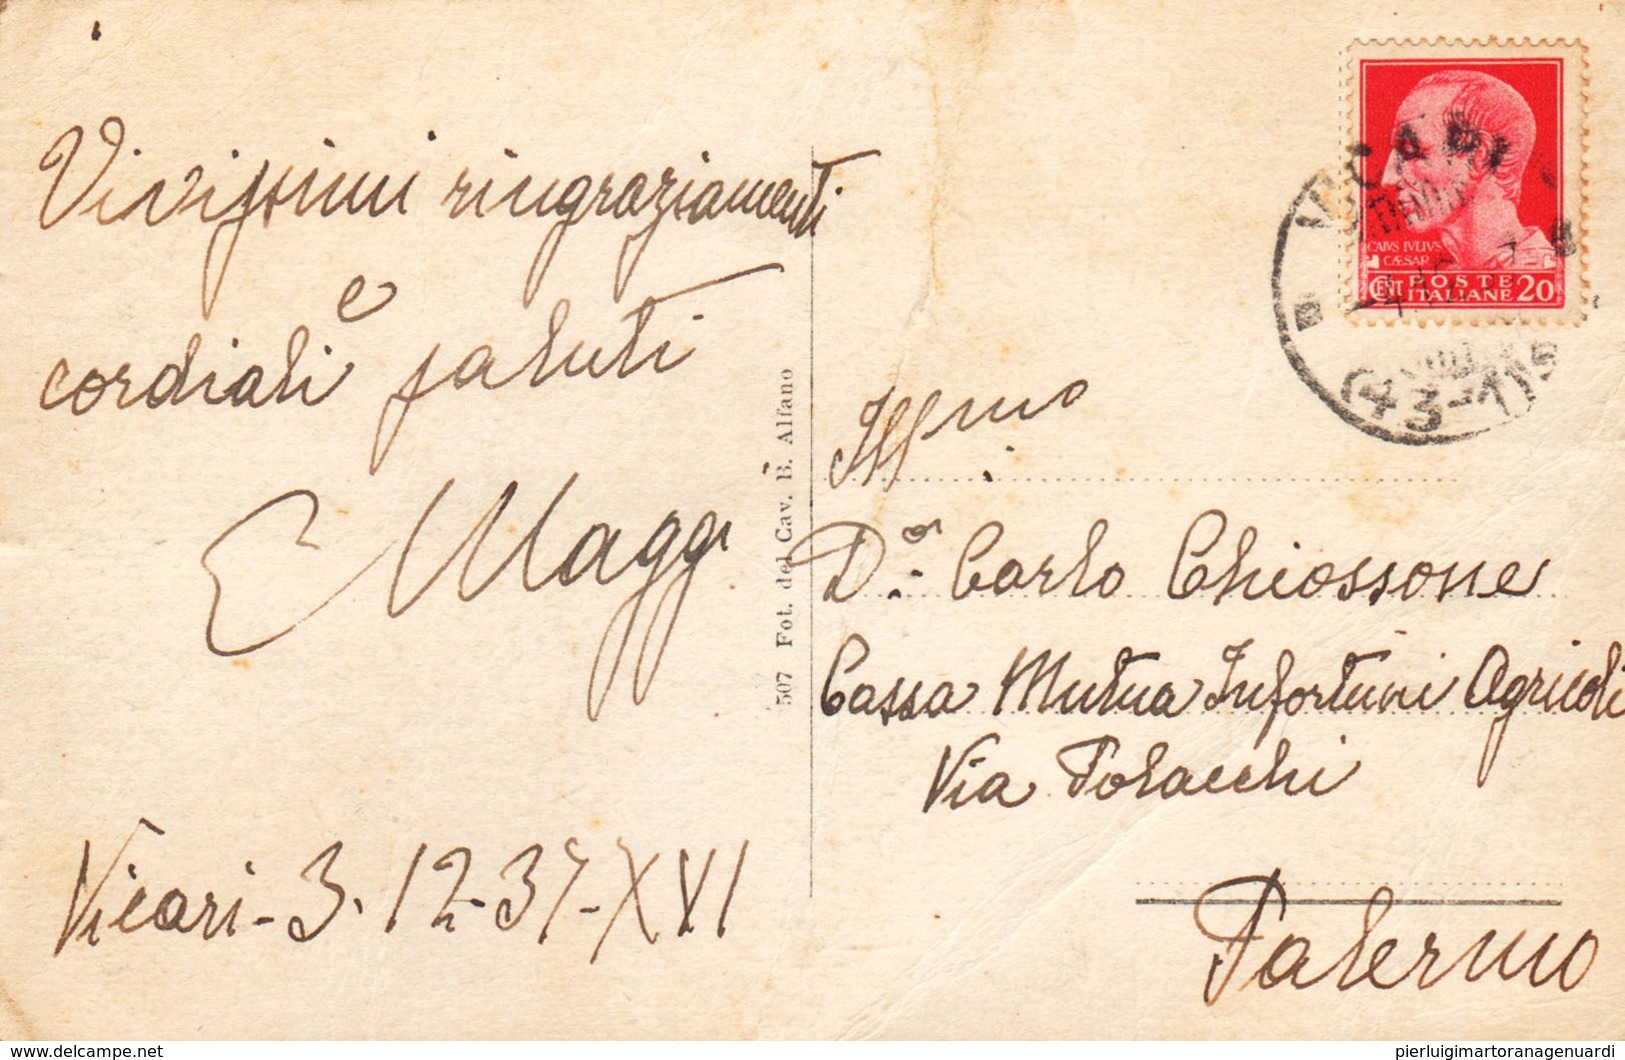 Vivissimi ringraziamenti
e
cordiali saluti
E Maggi
Vicari - 3. 12 - 37 - XVI
507 Fot. del Cav. B. Alfano
VICARI
(43-11)
CAIVS IVLIVS
CÆSAR
CENT POSTE
ITALIANE 20
Ill mo
Dor. Carlo Chiossone
Cassa Mutua Infortuni Agricoli
Via Polacchi
Palermo
delcampe.net
pierluigimartoranagenuardi